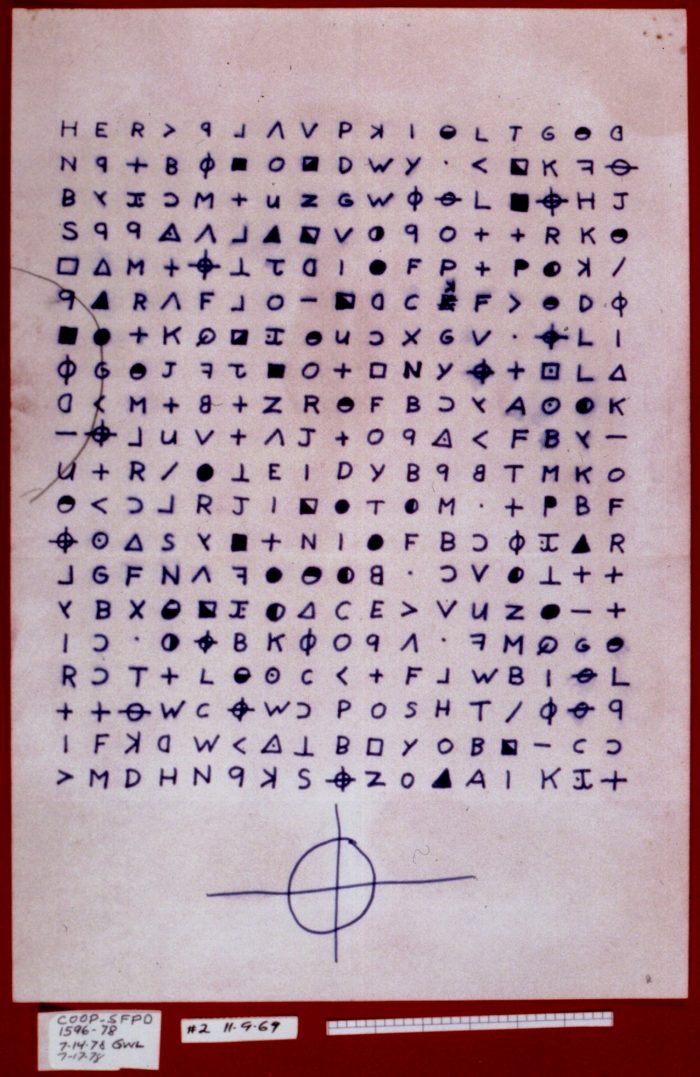 H E R > ꟼ ⅃ Λ V P ꓘ I ◒ L T G ◓ ᗡ
N ꟼ + B Φ ■ O ◪ D W Y · < ⬕ K ꟻ ⊖
B ⅄ Ɪ Ɔ M + U Z G W Φ ⊖ L ■ ⌖ H J
S ꟼ ꟼ ◬ Λ ⅃ ▲ ⬕ V ◑ ꟼ O + + R K ◓
□ △ M + ⌖ ⊥ τ ᗡ I ● F P + P ◐ ꓘ /
ꟼ ▲ R Λ F ⅃ O − ⬕ ᗡ C ꓘ F > ◓ D Φ
■ ● + K ∅ ◪ Ɪ ◓ U Ɔ X G V · ⌖ L I
Φ G ◓ J ꟻ τ ■ O + □ N Y ⌖ + ⊡ L △
ᗡ < M + 8 + Z R ◓ F B Ɔ ⅄ A ⊙ ◐ K
− ⌖ ⅃ U V + Λ J + O ꟼ ◬ < F B ⅄ −
U + R / ● ⊥ E I D Y B ꟼ 8 T M K O
◓ < Ɔ ⅃ R J I ⬕ ● T ◐ M · + P B F
⌖ ⊙ △ S ⅄ ■ + N I ● F B Ɔ Φ Ɪ ▲ R
⅃ G F N Λ ꟻ ● ◓ ◐ 8 · Ɔ V ◐ ⊥ + +
⅄ B X ◒ ⬕ Ɪ ◐ △ C E > V U Z ● − +
I Ɔ · ◑ ⌖ B K Φ O ꟼ Λ · ꟻ M ∅ G ◓
R Ɔ T + L ◒ ⊙ C < + F ⅃ W B I ⊖ L
+ + ⊖ W C ⌖ W Ɔ P O S H T / Φ ⊖ ꟼ
I F ꓘ ᗡ W < ◬ ⊥ B □ Y O B ⬕ − C Ɔ
> M D H N ꟼ ꓘ S ⌖ Z O ▲ A I K Ɪ +
COOP-SFPD
1596-78
7-14-78 GWL
7-17-78
#2 11-9-69